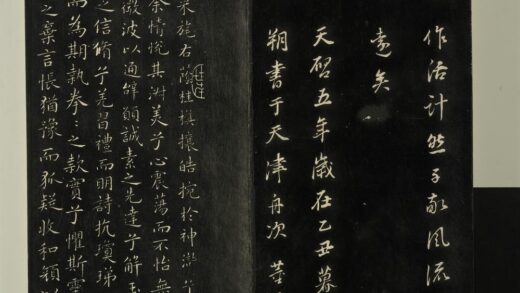 作活計然子敬風流
遠矣
天啓五年歲在乙丑暮
朔書于天津舟次董
采旄右蔭桂旗攘皓捥於神滸兮
余情悅其淑美兮心震蕩而不怡無
微波以通辭願誠素之先達兮解玉
之信脩兮羌習禮而明詩抗瓊珶
而為期執拳之款實兮懼斯靈
之棄言悵猶豫而狐疑收和顏